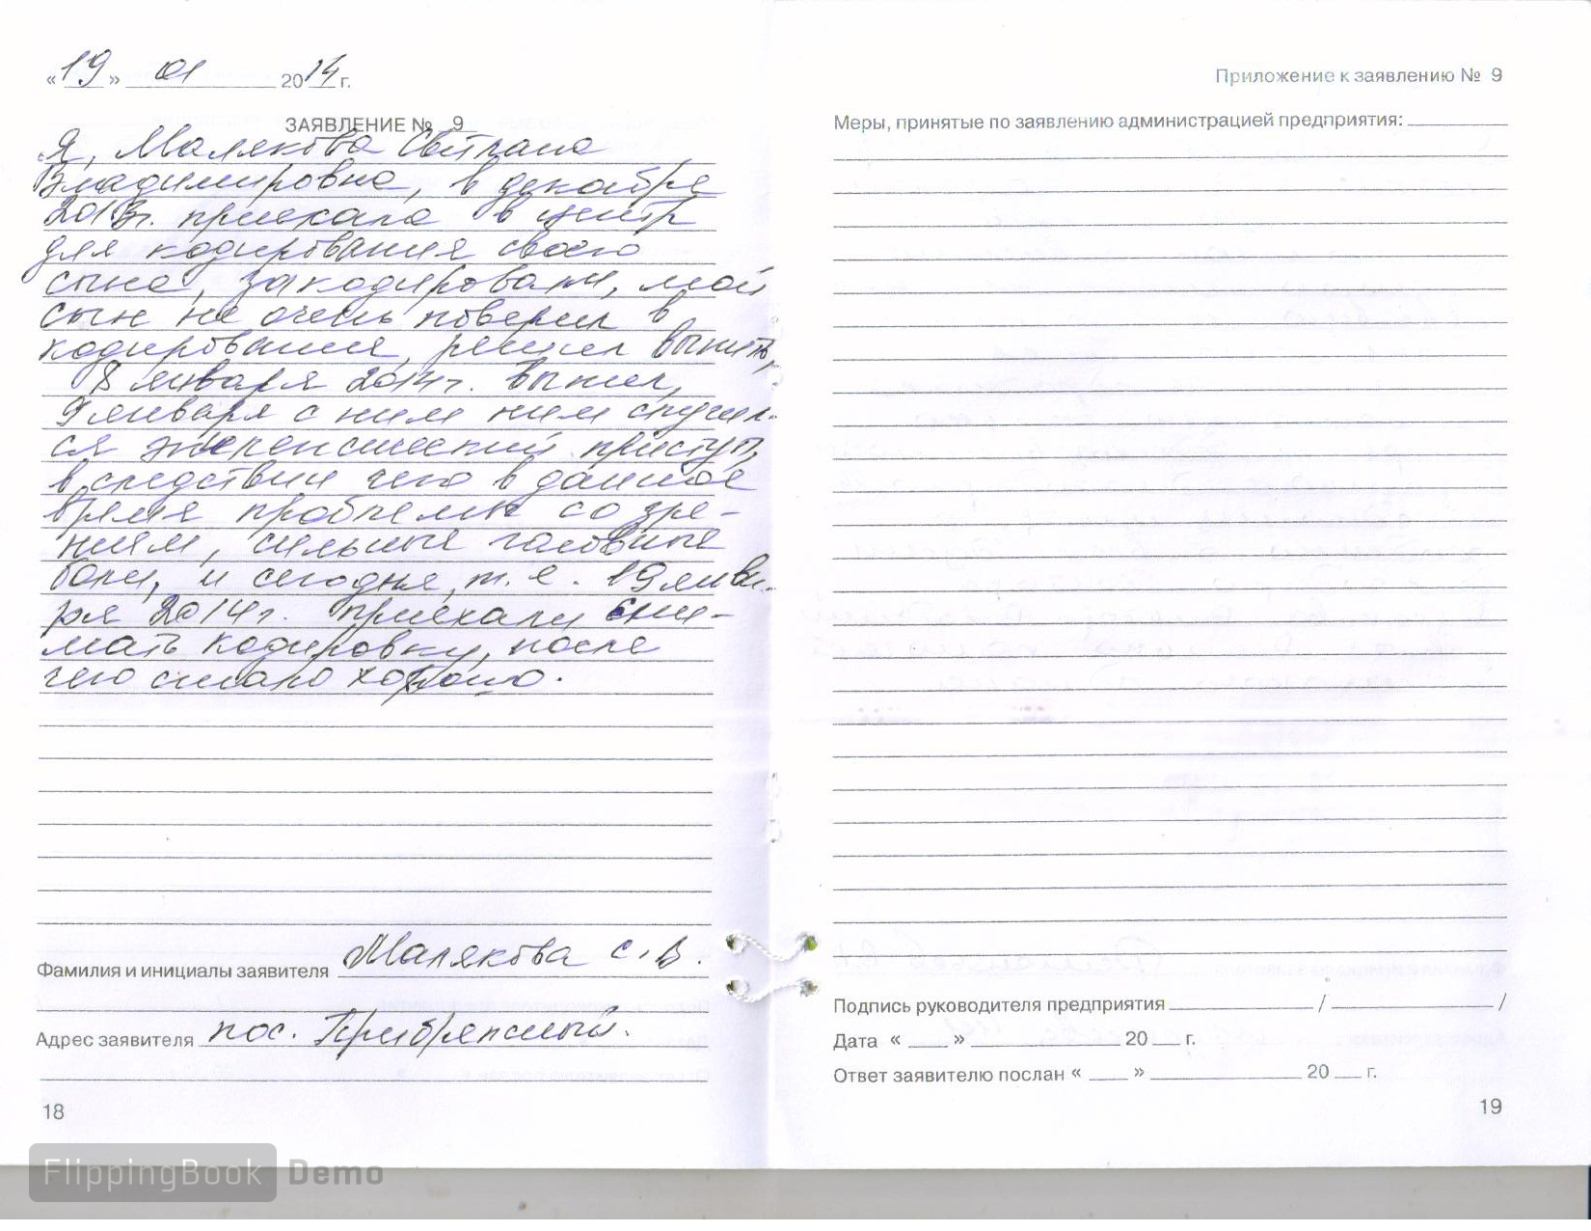 «19» 01 2014 г.
ЗАЯВЛЕНИЕ № 9
Я, Малякова Светлана
Владимировна, в декабре
2013г. приехала в центр
для кодирования своего
сына, закодировали, мой
сын не очень поверил в
кодирование, решил выпить,
8 января 2014г. выпил,
9 января с ним ним случил-
ся эпилепсический приступ,
в следствии чего в данное
время проблемы со зре-
нием, сильные головные
боли, и сегодня, т.е. 19 янва-
ря 2014г. приехали сни-
мать кодировку, после
чего стало хорошо.
Фамилия и инициалы заявителя Малякова С.В.
Адрес заявителя пос. Прибрежный.
18
Приложение к заявлению № 9
Меры, принятые по заявлению администрацией предприятия:
Подпись руководителя предприятия / /
Дата « » 20 г.
Ответ заявителю послан « » 20 г.
19
FlippingBook Demo